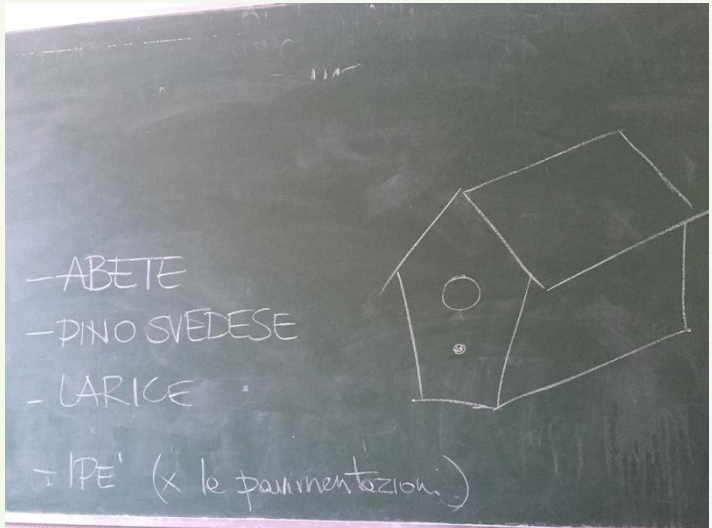 - ABETE
- PINO SVEDESE
- LARICE
- IPE' (x le pavimentazioni)